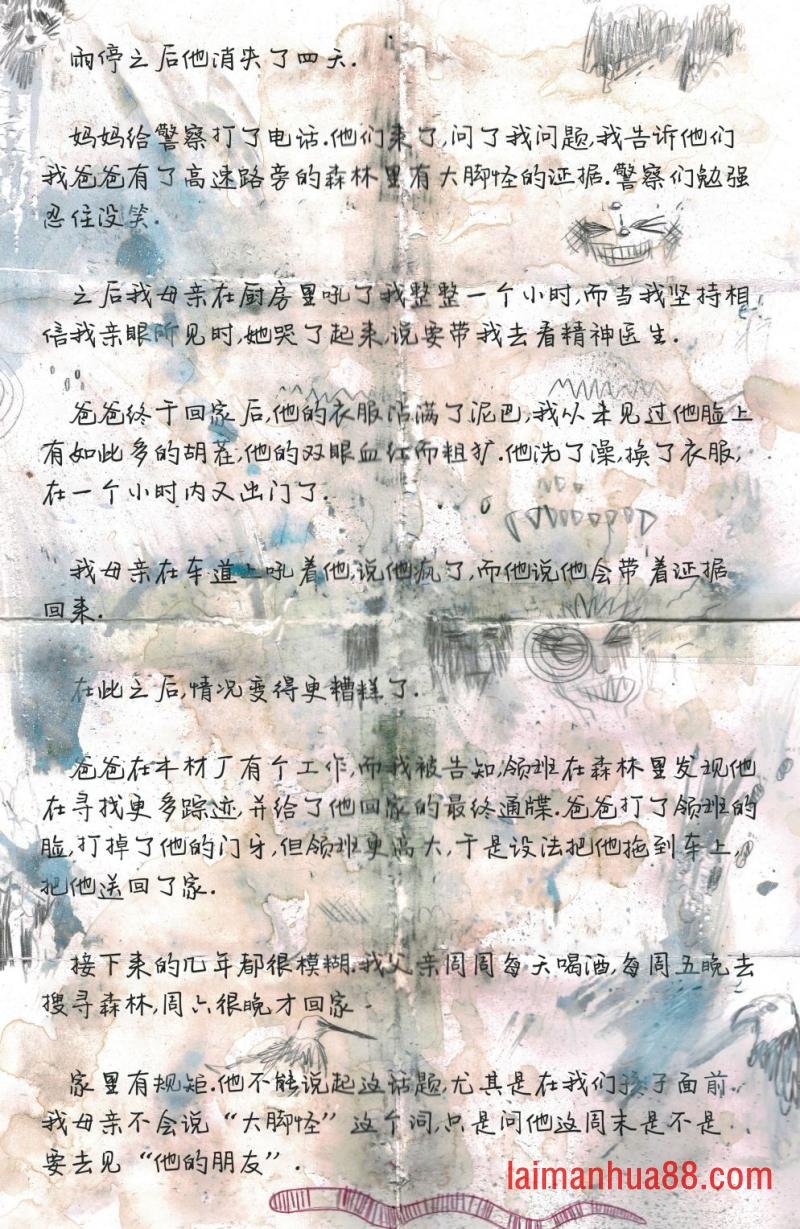 雨停之后他消失了四天.
妈妈给警察打了电话.他们来了,问了我问题,我告诉他们
我爸爸有了高速路旁的森林里有大脚怪的证据.警察们勉强
忍住没笑.
之后我母亲在厨房里吼了我整整一个小时,而当我坚持相
信我亲眼所见时,她哭了起来,说要带我去看精神医生.
爸爸终于回家后,他的衣服沾满了泥巴,我从未见过他脸上
有如此多的胡茬,他的双眼血红而粗犷.他洗了澡,换了衣服,
在一个小时内又出门了.
我母亲在车道上吼着他,说他疯了,而他说他会带着证据
回来.
在此之后,情况变得更糟糕了.
爸爸在木材厂有个工作,而我被告知,领班在森林里发现他
在寻找更多踪迹,并给了他回家的最终通牒.爸爸打了领班的
脸,打掉了他的门牙,但领班更高大,于是设法把他拖到车上,
把他送回了家.
接下来的几年都很模糊.我父亲周周每天喝酒,每周五晚去
搜寻森林,周六很晚才回家.
家里有规矩.他不能说起这话题,尤其是在我们孩子面前.
我母亲不会说“大脚怪”这个词,只是问他这周末是不是
要去见“他的朋友”.
laimanhua88.com